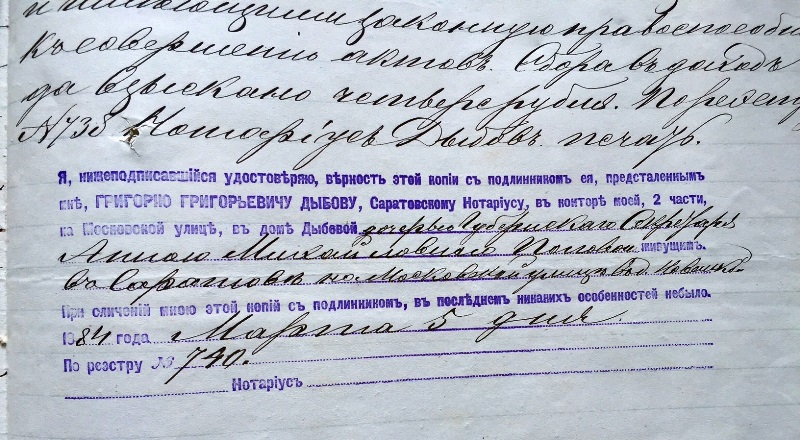 и имѣющими законную правоспособн
къ совершенію актовъ. Сбора въ доходъ
да взыскано четверть рубля. По реэстру
№ 738 Нотаріусъ Дыбовъ. печать.
Я, нижеподписавшійся удостовѣряю, вѣрность этой копіи съ подлинникомъ ея, предсталеннымъ
мнѣ, ГРИГОРІЮ ГРИГОРЬЕВИЧУ ДЫБОВУ, Саратовскому Нотаріусу, въ конторѣ моей, 2 части,
на Московской улицѣ, въ домѣ Дыбовой дочерью Губернскаго Секретаря
Анною Михайловною Поповою живущимъ.
въ Саратовѣ по Московской улицѣ въ д.
При сличеніи мною этой копіи съ подлинникомъ, въ послѣднемъ никакихъ особенностей небыло.
1884 года Марта 5 дня
По реэстру № 740.
Нотаріусъ